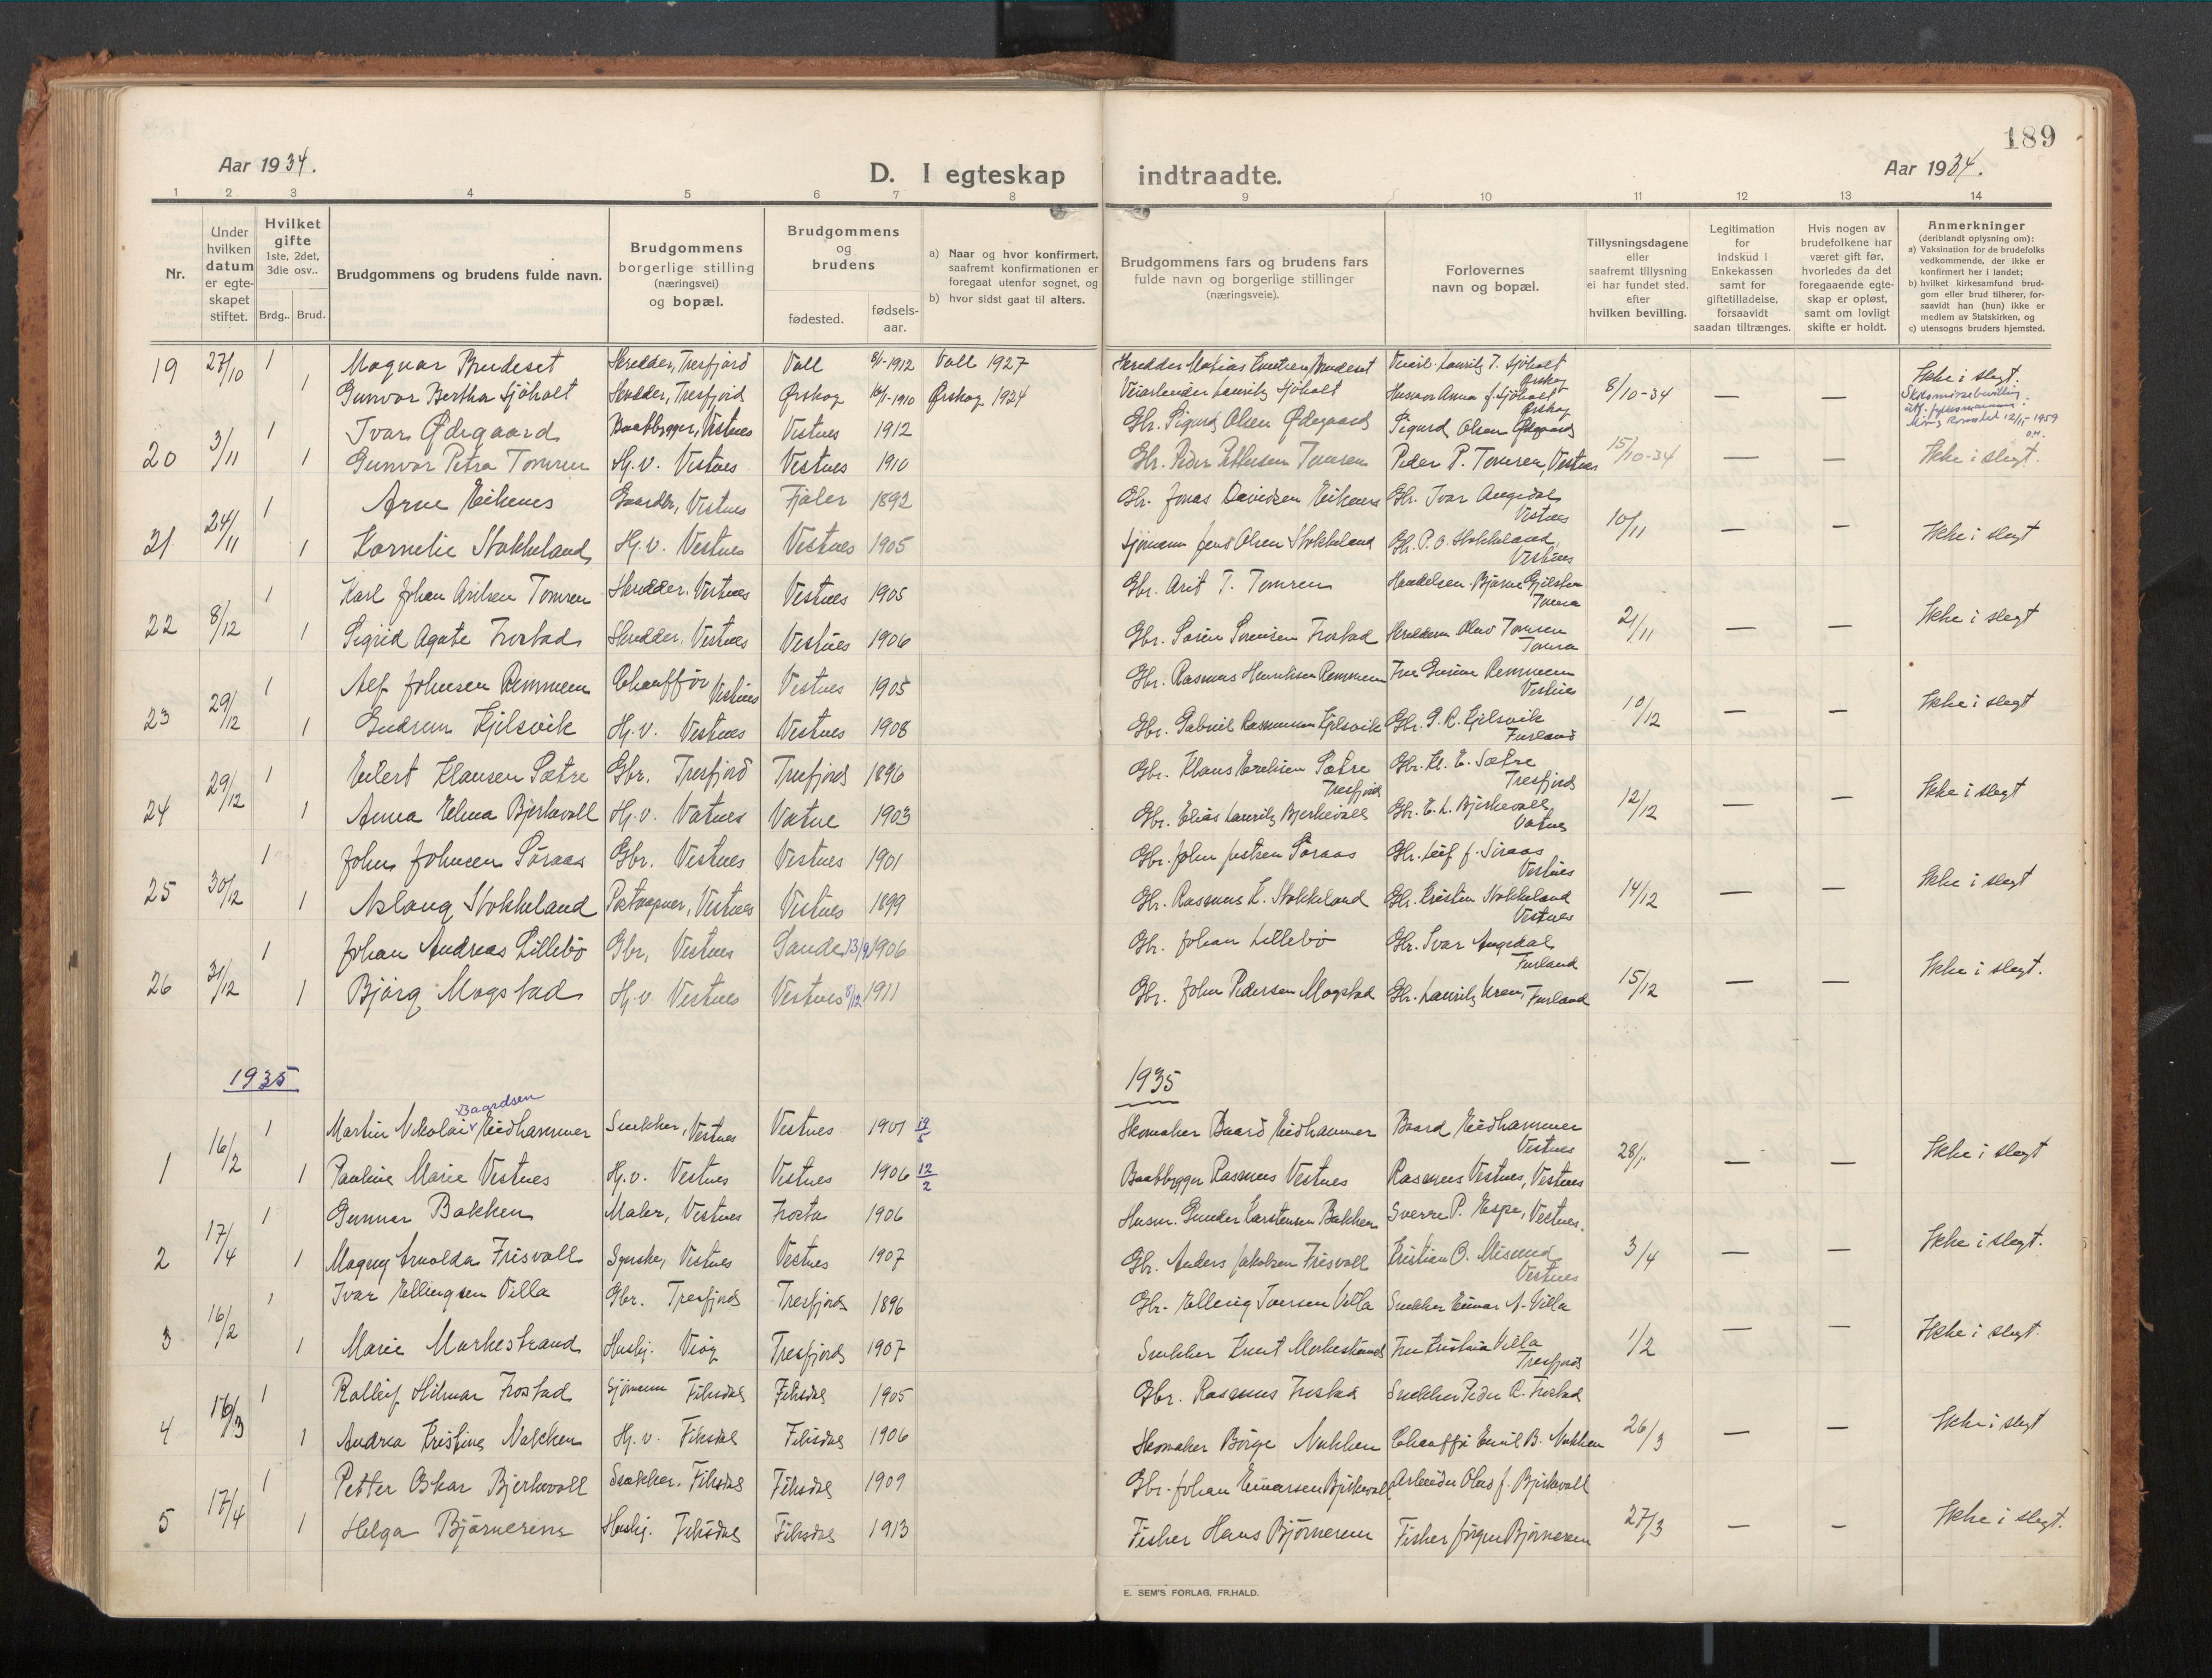 189
Aar 1934.
D. I egteskap indtraadte.
Aar 1934.
1 2 3 4 5 6 7 8 9 10 11 12 13 14
Nr.
Under hvilken datum er egte-skapet stiftet.
Hvilket gifte 1ste, 2det, 3die osv..
Brdg.. Brud.
Brudgommens og brudens fulde navn.
Brudgommens borgerlige stilling (næringsvei) og bopæl.
Brudgommens og brudens
fødested.
fødsels-aar.
a) Naar og hvor konfirmert, saafremt konfirmationen er foregaat utenfor sognet, og
b) hvor sidst gaat til alters.
Brudgommens fars og brudens fars fulde navn og borgerlige stillinger (næringsveie).
Forlovernes navn og bopæl.
Tillysningsdagene eller saafremt tillysning ei har fundet sted. efter hvilken bevilling.
Legitimation for indskud i Enkekassen samt for giftetilladelse, forsaavidt saadan tiltrænges.
Hvis nogen av brudefolkene har været gift før, hvorledes da det foregaaende egte-skap er opløst, samt om lovligt skifte er holdt.
Anmerkninger (deriblandt oplysning om):
a) Vaksination for de brudefolks vedkommende, der ikke er konfirmert her i landet;
b) hvilket kirkesamfund brud-gom eller brud tilhører, for-saavidt han (hun) ikke er medlem av Statskirken, og
c) utensogns bruders hjemsted.
19 27/10 1 Magnar Brudeset Skredder, Tresfjord Voll 8/1-1912 Voll 1927 Skredder Matias Knutsen Brudeset Lauritz T. Sjøholt Ørskog 8/10-34 — — Ikke i slegt.
1 Gunvor Bertha Sjøholt Skredder, Tresfjord Ørskog 1910 Ørskog 1924 Lauritz Sjøholt Anna J. Sjøholt Ørskog
Skilsmissebevilling utf. fylkesmannen i Møre og Romsdal 12/11-1959
20 3/11 1 Ivar Ødegaard Baatbygger, Vestnes Vestnes 1912 Gbr. Sigurd Olsen Ødegaard Sigurd Olsen Ødegaard 15/10-34 — — Ikke i slegt.
1 Gunvor Petra Tomren Hj.v. Vestnes Vestnes 1910 Gbr. Peder Pettersen Tomren Peder P. Tomren, Vestnes
21 24/11 1 Arne Eikenes Gaardbr, Vestnes Fjaler 1892 Gbr. Jonas Davidsen Eikenes Gbr. Ivar Augedal Vestnes 10/11 — — Ikke i slegt
1 Kornelie Stokkeland Hj.v. Vestnes Vestnes 1905 Sjømann Jens Olsen Stokkeland Gbr. P. O. Stokkeland, Vestnes
22 8/12 1 Karl Johan Aritsen Tomren Skredder, Vestnes Vestnes 1905 Gbr. Arit T. Tomren Bjarne Gjelsten Tomra 21/11 — — Ikke i slegt
1 Sigrid Agate Frostad Skredder, Vestnes Vestnes 1906 Gbr. Søren Sørensen Frostad Olav Tomren Tomra
23 29/12 1 Alf Johnsen Remmem Chauffør Vestnes Vestnes 1905 Gbr. Rasmus Henriksen Remmem Fru Remmem Vestnes 10/12 — — Ikke i slegt
1 Gudrun Kjelsvik Hj.v. Vestnes Vestnes 1908 Gbr. Gabriel Rasmussen Kjelsvik Gbr. G. R. Kjelsvik Furland
24 29/12 1 Eilert Klausen Sætre Gbr. Tresfjord Tresfjord 1896 Gbr. Klaus Eriksen Sætre Tresfjord Gbr. Kl. E. Sætre Tresfjord 12/12 — — Ikke i slegt
1 Anna Elina Bjerkevoll Hj.v. Vatnes Vatne 1903 Gbr. Elias Lauritz Bjerkevoll Gbr. E. L. Bjerkevoll, Vatnes
25 30/12 1 John Johnsen Søraas Gbr. Vestnes Vestnes 1901 Gbr. John Søraas Gbr. Leif J. Søraas Vestnes 14/12 — — Ikke i slegt
1 Aslaug Stokkeland Vestnes Vestnes 1899 Gbr. Rasmus K. Stokkeland Gbr. Kristen Stokkeland Vestnes
26 31/12 1 Johan Andreas Lillebø Gbr, Vestnes Sande 13/9 1906 Gbr. Johan Lillebø Gbr. Ivar Augedal Furland 15/12 — — Ikke i slegt.
1 Bjørg Magstad Hj.v. Vestnes Vestnes 8/12 1911 Gbr. John Pedersen Magstad Gbr. Lauritz Furland
1935 1935
1 16/2 1 Martin Nikolai Baardsen Eidhammer Snekker, Vestnes Vestnes 1901 19/5 Skomaker Baard Eidhammer Baard Eidhammer Vestnes 28/1 — — Ikke i slegt
1 Pauline Marie Vestnes Hj.v. Vestnes Vestnes 1906 12/2 Baatbygger Rasmus Vestnes Rasmus Vestnes, Vestnes
2 17/4 1 Gunnar Bakken Maler, Vestnes Frosta 1906 Husm. Gunder Karstensen Bakken Sverre P. Espe, Vestnes. 3/4 — — Ikke i slegt.
1 Magny Arnolda Frisvoll Vestnes Vestnes 1907 Gbr. Anders Jakobsen Frisvoll Kristian O. Misund Vestnes
3 16/2 1 Ivar Ellingsen Villa Gbr. Tresfjord Tresfjord 1896 Gbr. Elling Iversen Villa Snekker Einar A. Villa 1/2 — — Ikke i slegt.
1 Marie Morkestrand Hushj. Viøy Tresfjord 1907 Snekker Knut Morkestrand Fru Kristina Villa Tresfjord
4 16/3 1 Rolleif Hilmar Frostad Sjømann Fiksdal Fiksdal 1905 Gbr. Rasmus Frostad Snekker Peder R. Frostad 26/3 — — Ikke i slegt
1 Andrea Kristine Nakken Hj.v. Fiksdal Fiksdal 1906 Skomaker Børge Nakken Chauffør Emil B. Nakken
5 17/4 1 Petter Oskar Bjerkevoll Snekker, Fiksdal Fiksdal 1909 Gbr. Johan Einarsen Bjerkevoll Arbeider Olav J. Bjerkevoll 27/3 — — Ikke i slegt.
1 Helga Bjørnerem Hushj. Fiksdal Fiksdal 1913 Fisker Hans Bjørnerem Fisker Jørgen Bjørnerem
E. SEM'S FORLAG, FR.HALD.